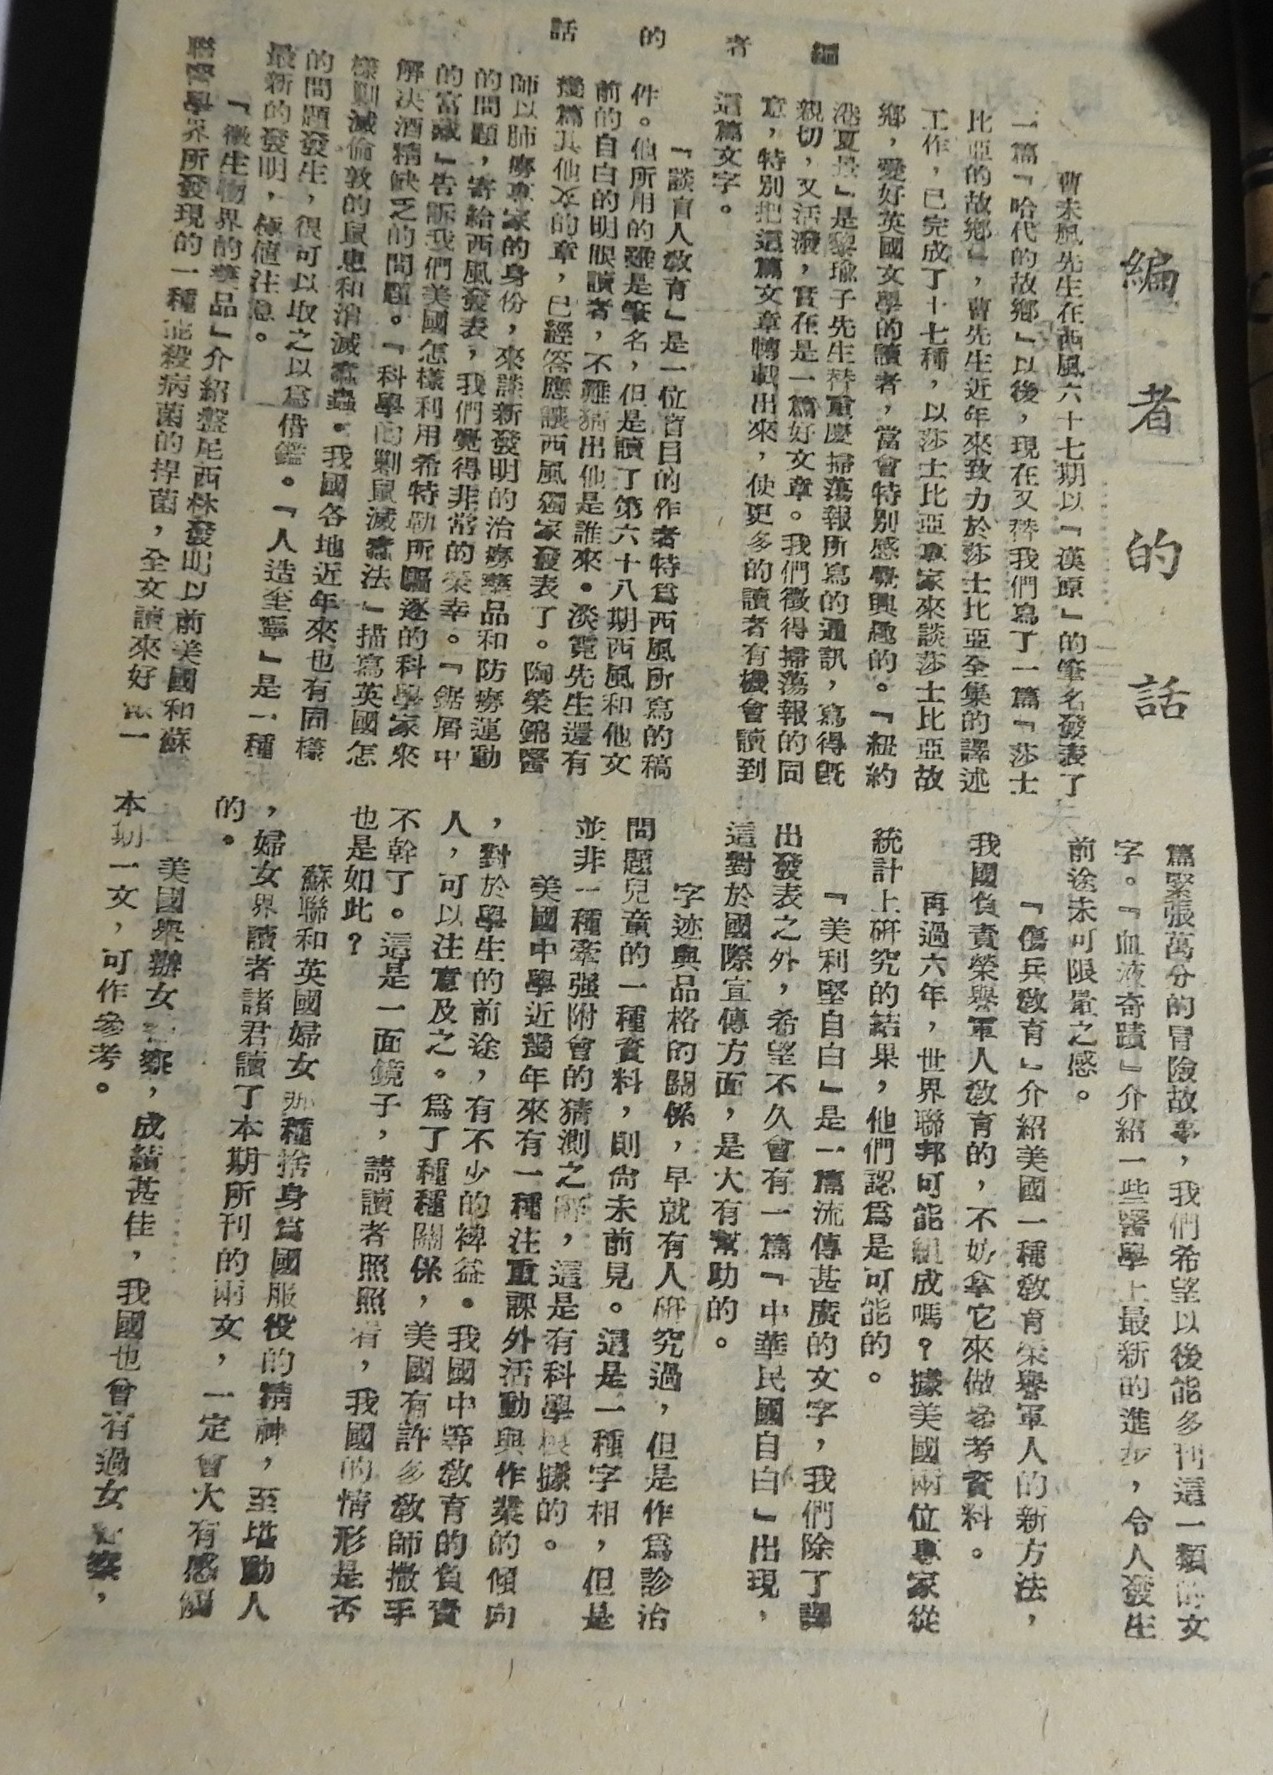 編者的話
編者的話
曹未風先生在西風六十七期以『漢原』的筆名發表了
一篇『哈代的故鄉』以後，現在又替我們寫了一篇『莎士
比亞的故鄉』，曹先生近年來致力於莎士比亞全集的譯述
工作，已完成了十七種，以莎士比亞專家來談莎士比亞故
鄉，愛好英國文學的讀者，當會特別感覺興趣的。『紐約
港夏景』是黎瑜子先生替重慶掃蕩報所寫的通訊，寫得既
親切，又活潑，實在是一篇好文章。我們徵得掃蕩報的同
意，特別把這篇文章轉載出來，使更多的讀者有機會讀到
這篇文字。
『談盲人敎育』是一位盲目的作者特爲西風所寫的稿
件。他所用的雖是筆名，但是讀了第六十八期西風和他文
前的自白的明眼讀者，不難猜出他是誰來。淡霓先生還有
幾篇其他文的章，已經答應讓西風獨家發表了。陶榮錦醫
師以肺癆專家的身份，來談新發明的治癆藥品和防癆運動
的問題，寄給西風發表，我們覺得非常的榮幸。『鋸屑中
的富藏』告訴我們美國怎樣利用希特勒所驅逐的科學家來
解决酒精缺乏的問題。『科學的剿鼠滅蠹法』描寫英國怎
樣剿滅倫敦的鼠患和消滅蠹蟲。我國各地近年來也有同樣
的問題發生，很可以取之以爲借鑑。『人造至寧』是一種
最新的發明，極値注意。
『微生物界的藥品』介紹盤尼西林發明以前美國和蘇
聯醫學界所發現的一種能殺病菌的捍菌，全文讀來好像一
篇緊張萬分的冒險故事，我們希望以後能多刊這一類的文
字。『血液奇蹟』介紹一些醫學上最新的進步，令人發生
前途未可限量之感。
『傷兵敎育』介紹美國一種敎育榮譽軍人的新方法，
我國負責榮譽軍人敎育的，不妨拿它來做參考資料。
再過六年，世界聯邦可能組成嗎？據美國兩位專家從
統計上硏究的結果，他們認爲是可能的。
『美利堅自白』是一篇流傳甚廣的文字，我們除了譯
出發表之外，希望不久會有一篇『中華民國自白』出現，
這對於國際宣傳方面，是大有幫助的。
字迹與品格的關係，早就有人硏究過，但是作爲診治
問題兒童的一種資料，則尙未前見。這是一種字相，但是
並非一種牽强附會的猜測之辭，這是有科學根據的。
美國中學近幾年來有一種注重課外活動與作業的傾向
，對於學生的前途，有不少的裨益。我國中等敎育的負責
人，可以注意及之。爲了種種關係，美國有許多敎師撒手
不幹了。這是一面鏡子，請讀者照照看，我國的情形是否
也是如此？
蘇聯和英國婦女那種捨身爲國服役的精神，至堪動人
，婦女界讀者諸君讀了本期所刊的兩文，一定會大有感觸
的。
美國舉辦女警察，成績甚佳，我國也曾有過女警察，
本期一文，可作參考。